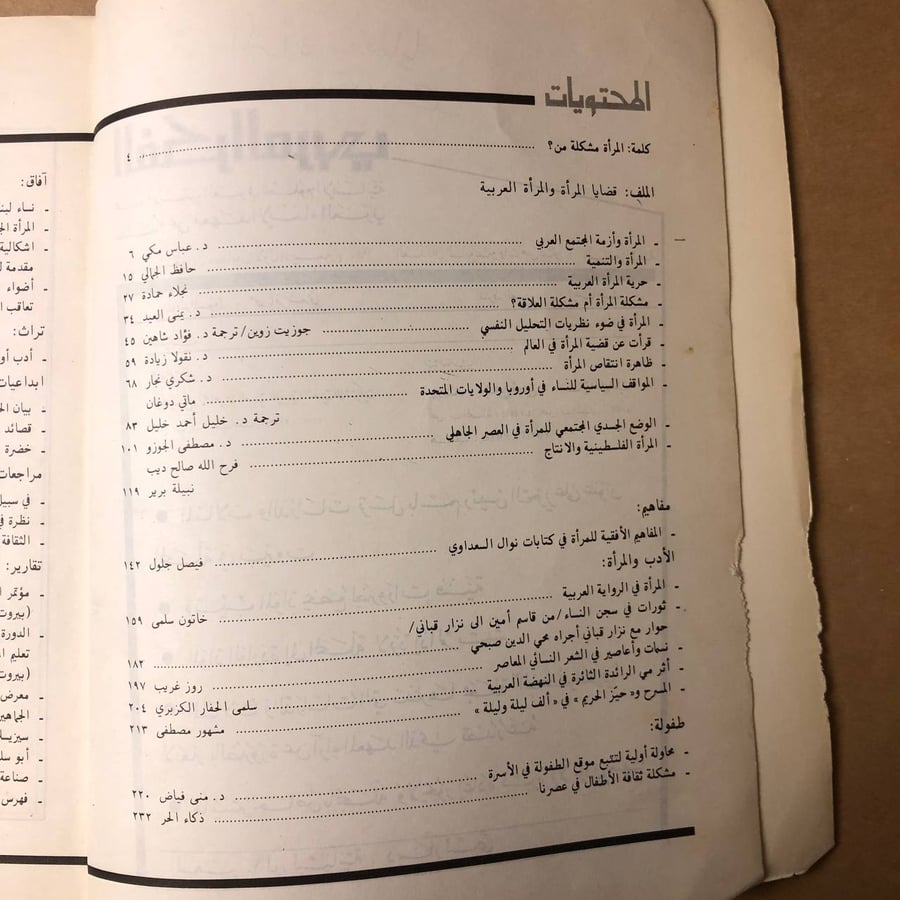 المحتويات
كلمة: المرأة مشكلة من؟ ........ ٤
الملف: قضايا المرأة والمرأة العربية
- المرأة وأزمة المجتمع العربي ........ د. عباس مكي ٦
- المرأة والتنمية ........ حافظ الجمالي ١٥
- حرية المرأة العربية ........ نجلاء حمادة ٢٧
- مشكلة المرأة أم مشكلة العلاقة؟ ........ د. يمنى العيد ٣٤
- المرأة في ضوء نظريات التحليل النفسي ........ جوزيت زوين/ ترجمة د. فؤاد شاهين ٤٥
- قرأت عن قضية المرأة في العالم ........ د. نقولا زيادة ٥٩
- ظاهرة انتقاص المرأة ........ د. شكري نجار ٦٨
- المواقف السياسية للنساء في أوروبا والولايات المتحدة ........ ماتي دوغان
ترجمة د. خليل أحمد خليل ٨٣
- الوضع الجسدي المجتمعي للمرأة في العصر الجاهلي ........ د. مصطفى الجوزو ١٠١
- المرأة الفلسطينية والانتاج ........ فرح الله صالح ديب
نبيلة برير ١١٩
مفاهيم:
- المفاهيم الأفقية للمرأة في كتابات نوال السعداوي ........ فيصل جلول ١٤٢
الأدب والمرأة:
- المرأة في الرواية العربية ........ خاتون سلمى ١٥٩
- ثورات في سجن النساء/من قاسم أمين الى نزار قباني/
حوار مع نزار قباني أجراه محي الدين صبحي ........ ١٨٢
- نسمات وأعاصير في الشعر النسائي المعاصر ........ روز غريب ١٩٧
- أثر مي الرائدة الثائرة في النهضة العربية ........ سلمى الحفار الكزبري ٢٠٤
- المسرح و« حيّز الحريم » في « ألف ليلة وليلة » ........ مشهور مصطفى ٢١٣
طفولة:
- محاولة أولية لتتبع موقع الطفولة في الأسرة ........ د. منى فياض ٢٢٠
- مشكلة ثقافة الأطفال في عصرنا ........ ذكاء الحر ٢٣٢
آفاق:
- المرأة
- اشكالية
مقدمة
- أضواء
تعاقب
تراث:
- أدب
ابداعيات
- بيان
- قصائد
- خضرة
مراجعات
- في سبيل
- نظرة
- الثقافة
تقارير:
- مؤتمر
(بيروت
- الدورة
تعليم
(بيروت
- معرض
- الجماهير
- أبو
- صناعة
- فهرس